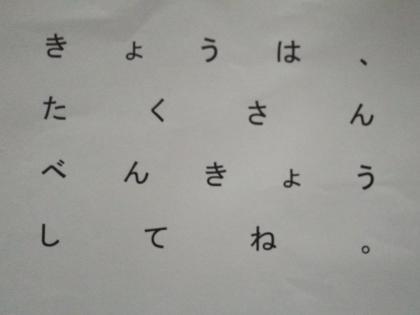 きょうは、
たくさん
べんきょう
してね。